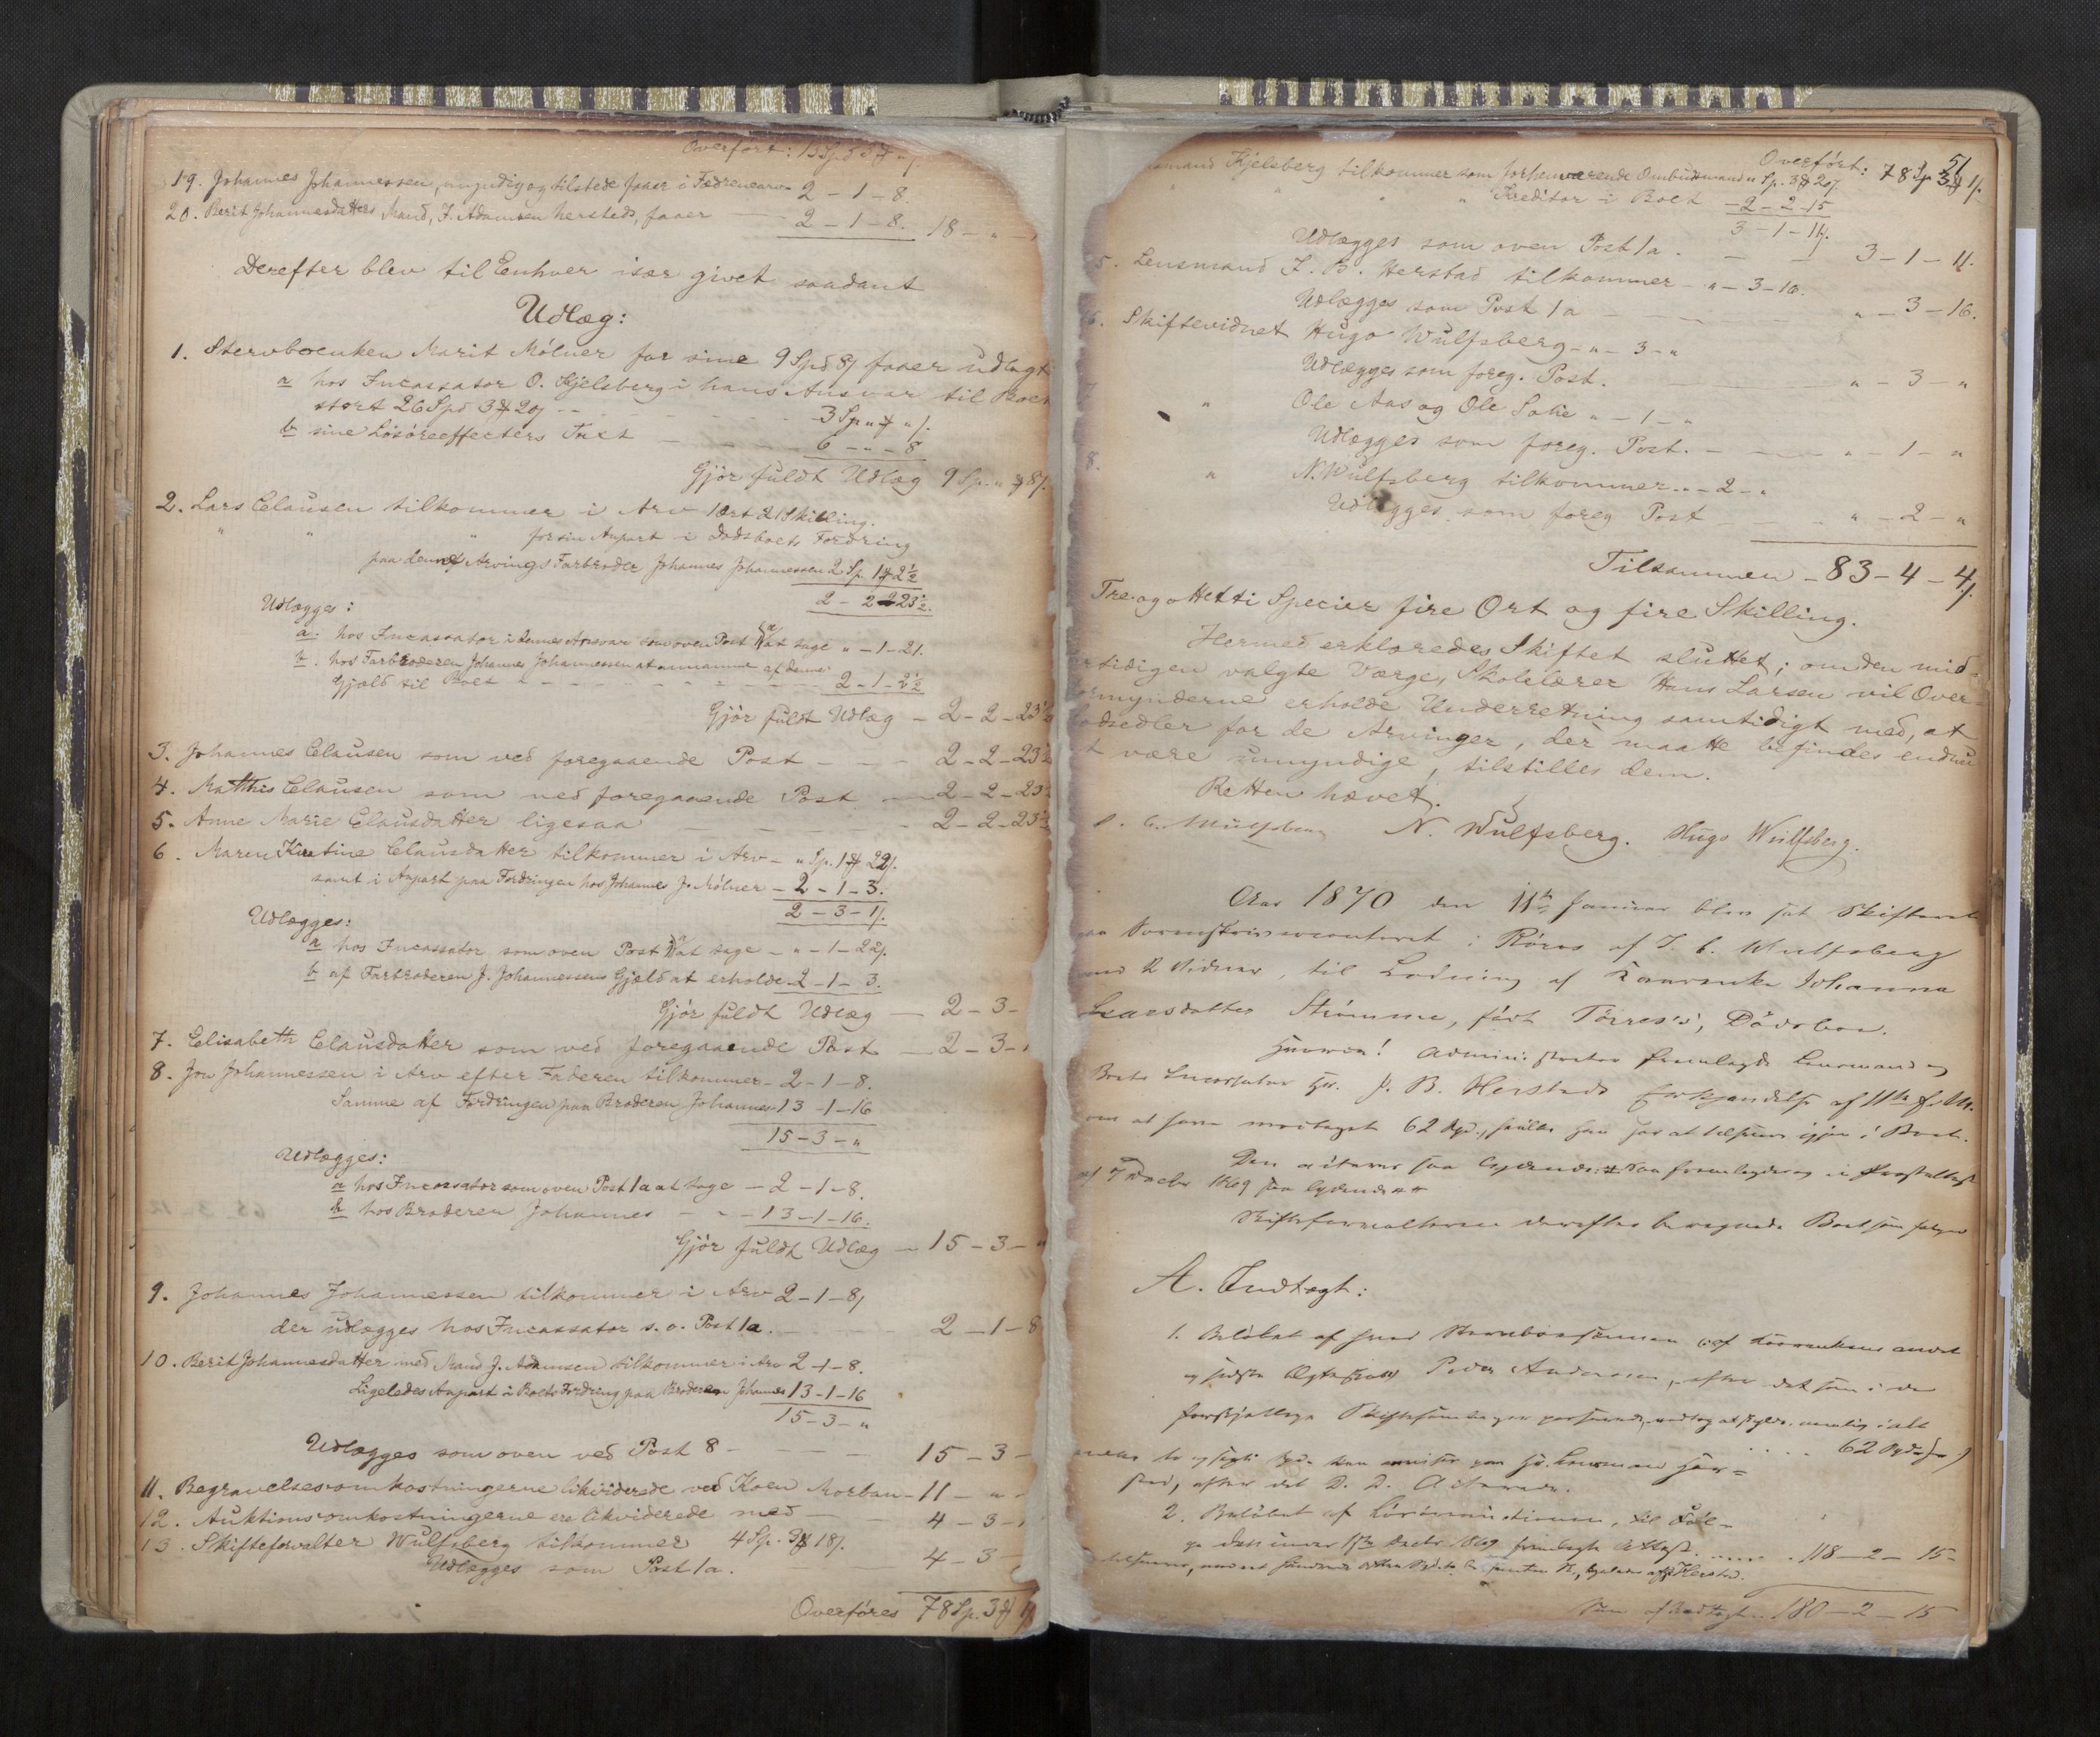 Overført: 15 Sp
19. Johannes Johannessen, myndig og tilstede faaer i Fædrenearv 2 - 1 - 8.
20. Berit Johannesdatters Mand, J. Adamsen Hersteds, faaer 2 - 1 - 8. 18 - "
Derefter blev til Enhver især givet saadant
Udlæg:
1. Stervboenken Marit Mölner for sine 9 Spd 8 s faaer udlagt
a hos Incassator O. Kjelsberg i hans Ansvar til Boet
stort 26 Spd 3 20 3 Sp " "
b sine Lösöreeffecters Trest 6 - " - 8
Gjör fuldt Udlæg 9 Sp. " 8
2. Lars Clausen tilkommer i Arv 1 ort 21 Skilling.
" " " for sin Anpart i Dödsboets Fordring
paa dennes Arvings Farbroder Johannes Johannessen 2 Sp. 1 2½
2 - 2 - 23½.
Udlægges:
a. hos Incassator i dennes Ansvar som oven Post 1a at tage " - 1 - 21.
b. hos Farbroderen Johannes Johannessen at annamme af denne
Gjæld til Boet 2 - 1 - 2½
Gjör fuldt Udlæg - 2 - 2 - 23½
3. Johannes Clausen som ved foregaaende Post - 2 - 2 - 23½
4. Matthis Clausen som ved foregaaende Post - 2 - 2 - 23½
5. Anne Marie Clausdatter ligesaa - 2 - 2 - 23½
6. Maren Kirstine Clausdatter tilkommer i Arv - " Sp. 1 22
samt i Anpart paa Fordringen hos Johannes J. Mölner - 2 - 1 - 3.
2 - 3 - 1
Udlægges:
a hos Incassator som oven Post 1a at tage - " - 1 - 22
b af Farbroderen J. Johannessens Gjæld at erholde 2 - 1 - 3.
Gjör fuldt Udlæg - 2 - 3 -
7. Elisabeth Clausdatter som ved foregaaende Post - 2 - 3 -
8. Jon Johannessen i Arv efter Faderen tilkommer - 2 - 1 - 8.
Samme af Fordringen paa Broderen Johannes 13 - 1 - 16
15 - 3 - "
Udlægges:
a hos Incassator som oven Post 1a at tage - 2 - 1 - 8.
b hos Broderen Johannes - 13 - 1 - 16.
Gjör fuldt Udlæg - 15 - 3 - "
9. Johannes Johannessen tilkommer i Arv 2 - 1 - 8,
der udlægges hos Incassator s. o. Post 1a. 2 - 1 - 8
10. Berit Johannesdatter med Mand J. Adamsen tilkommer i Arv 2 - 1 - 8.
Ligeledes Anpart i Boets Fordring paa Broderen Johannes 13 - 1 - 16
15 - 3 - "
Udlægges som oven ved Post 8 - 15 - 3 -
11. Begravelsesomkostningerne likviderede ved Koen Morban - 11 - "
12. Auktionsomkostningerne ere likviderede med 4 - 3 -
13. Skifteforvalter Wulfsberg tilkommer 4 Sp. 3 18
Udlægges som Post 1a. 4 - 3 -
Overføres 78 Sp. 3
51
Overført: 78 Sp 3 1
Kjelsberg tilkommer som forhenværende Ombudsmand " Sp. 3 20
" " " Kreditor i Boet - 2 - 2 - 15
3 - 1 - 11.
Udlægges som oven Post 1a. 3 - 1 - 11.
5. Lensmand J. B. Herstad tilkommer - " - 3 - 16.
Udlægges som Post 1a " - 3 - 16.
6. Skiftevidnet Hugo Wulfsberg - " - 3 - "
Udlægges som foreg. Post. " - 3 - "
7 " Ole Aas og Ole Solie " - 1 - "
Udlægges som foreg. Post. - " - 1 - "
8. " N. Wulfsberg tilkommer " - 2 - "
Udlægges som foreg Post - " - 2 - "
Tilsammen - 83 - 4 - 4
Tre og ottetti Specier fire Ort og fire Skilling.
Hermed erklæredes Skiftet sluttet; om den mid-
tidigen valgte Værge, Skolelærer Hans Larsen vil Over-
formynderne erholde Underretning samtidigt med, at
Lodsedler for de Arvinger, der maatte befindes endnu
at være umyndige, tilstilles dem.
Retten hævet.
Wulfsberg N. Wulfsberg. Hugo Wulfsberg.
Aar 1870 den 11te Januar blev sat Skifteret
paa Sorenskrivercontoret i Röros af J. C. Wulfsberg
med 2 Vidner, til Slutning af Kaarenke Johanna
Larsdatter Strömme, född Törres's, Dödsboe.
Hvorda! Administrator fremlagde Lensmand og
Boets Incassator Hr. J. B. Herstads Erkjendelse af 11te d. M.
om at have modtaget 62 Spd.,
af 7 Decbr 1869 saa lydende
Skifteforvalteren derefter beregnede Boet som følger
A. Indtægt:
1. Beløbet af hvad Stervboesönnen af Kaarenkens andet
og sidste Ægteskab Peder Andersen, efter det som i de
forskjellige Skiftesamlinger
62 Spd
2. Beløbet af Lösöreauctionen, til Föl-
ge den 11te Decbr 1869 fremlagte Attest. 118 - 2 - 15 -
Sum af Indtægt 180 - 2 - 15